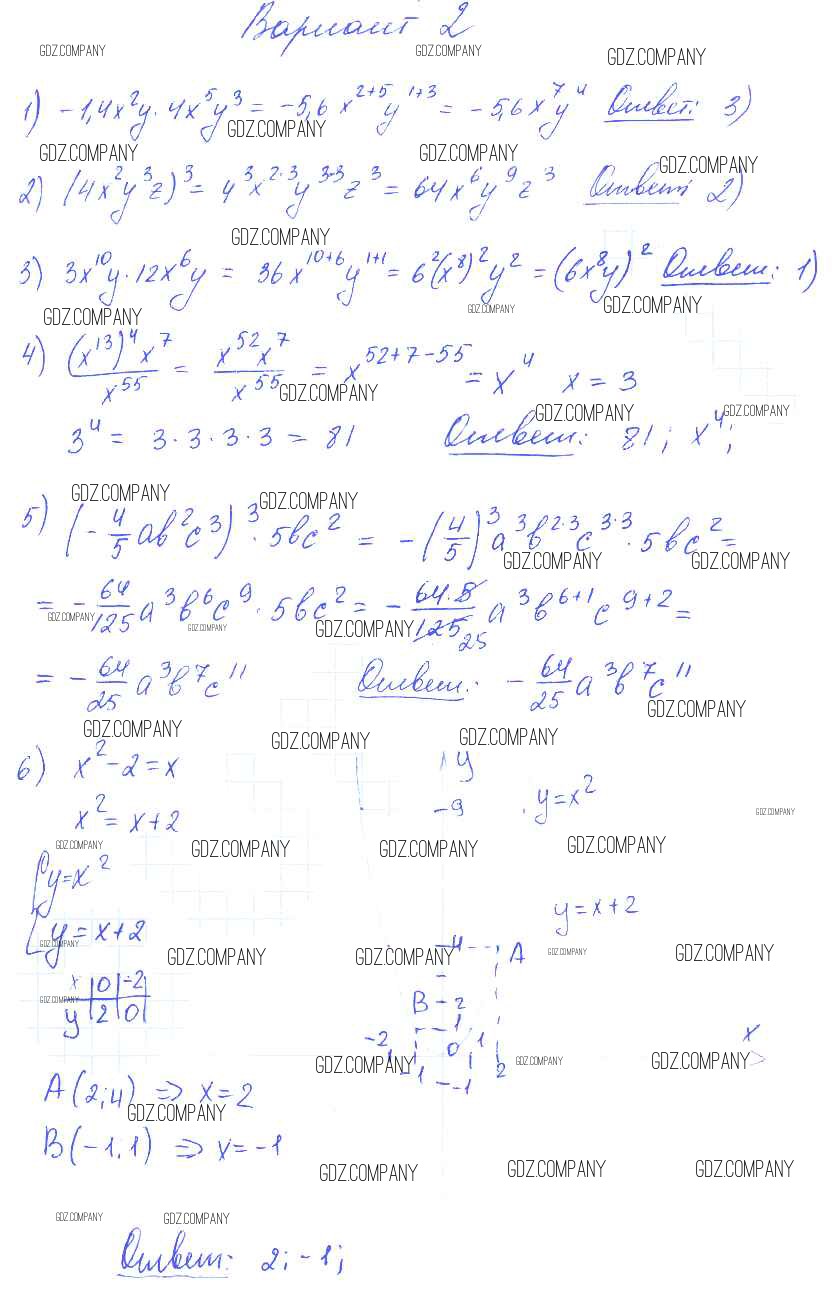 Вариант 2
GDZ.COMPANY GDZ.COMPANY GDZ.COMPANY
1) -1,4x²y · 4x⁵y³ = -5,6 x²⁺⁵y¹⁺³ = -5,6x⁷y⁴ Ответ: 3)
GDZ.COMPANY
GDZ.COMPANY GDZ.COMPANY GDZ.COMPANY
2) (4x²y³z)³ = 4³x²·³y³·³z³ = 64x⁶y⁹z³ Ответ: 2)
GDZ.COMPANY
3) 3x¹⁰y · 12x⁶y = 36x¹⁰⁺⁶y¹⁺¹ = 6²(x⁸)²y² = (6x⁸y)² Ответ: 1)
GDZ.COMPANY GDZ.COMPANY GDZ.COMPANY
4) (x¹³)⁴x⁷/x⁵⁵ = x⁵²x⁷/x⁵⁵ = x⁵²⁺⁷⁻⁵⁵ = x⁴ x = 3
GDZ.COMPANY
GDZ.COMPANY GDZ.COMPANY
3⁴ = 3·3·3·3 = 81 Ответ: 81; x⁴;
GDZ.COMPANY GDZ.COMPANY
5) (-4/5 ab²c³)³ · 5bc² = -(4/5)³a³b²·³c³·³ · 5bc² =
GDZ.COMPANY GDZ.COMPANY
= -64/125 a³b⁶c⁹ · 5bc² = -64·5/125 25 a³b⁶⁺¹c⁹⁺² =
GDZ.COMPANY GDZ.COMPANY GDZ.COMPANY
= -64/25 a³b⁷c¹¹ Ответ: -64/25 a³b⁷c¹¹
GDZ.COMPANY
GDZ.COMPANY GDZ.COMPANY GDZ.COMPANY
6) x² - 2 = x y
-9 y = x²
GDZ.COMPANY
x² = x + 2
GDZ.COMPANY GDZ.COMPANY GDZ.COMPANY GDZ.COMPANY
y = x²
y = x + 2
y = x + 2
GDZ.COMPANY GDZ.COMPANY GDZ.COMPANY GDZ.COMPANY GDZ.COMPANY
4 A
x 0 -2
GDZ.COMPANY
y 2 0
B 2
1
-2 -1 0 1 2 x
GDZ.COMPANY GDZ.COMPANY GDZ.COMPANY
-1
A(2;4) ⇒ x = 2
GDZ.COMPANY
B(-1;1) ⇒ x = -1
GDZ.COMPANY GDZ.COMPANY GDZ.COMPANY
GDZ.COMPANY GDZ.COMPANY
Ответ: 2; -1;